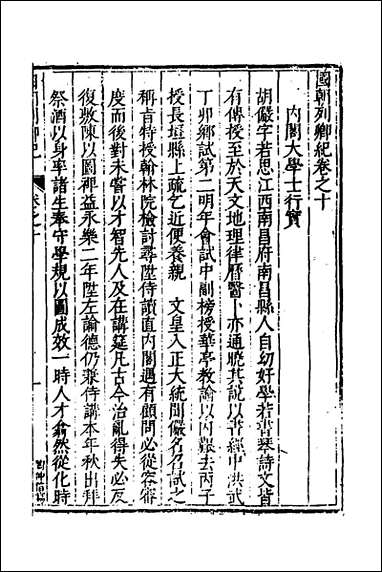 國朝列卿紀卷之十
内閣大學士行實
胡儼字若思江西南昌府南昌縣人自幼好學若書琴詩文皆
有傳授至於天文地理律曆醫卜亦通曉其說以書經中洪武
丁卯鄉試第二明年會試中副榜授華亭教諭以内艱去丙子
授長垣縣上疏乞近便養親 文皇入正大統聞儼名召試之
稱旨特授翰林院檢討尋陞侍讀直内閣遇有顧問必從容審
度而後對未嘗以才智先人及在講筵凡古今治亂得失必反
復敷陳以圖裨益永樂二年陞左諭德仍兼侍講本年秋出拜
祭酒以身率諸生奉守學規以圖成效一時人才翕然從化時